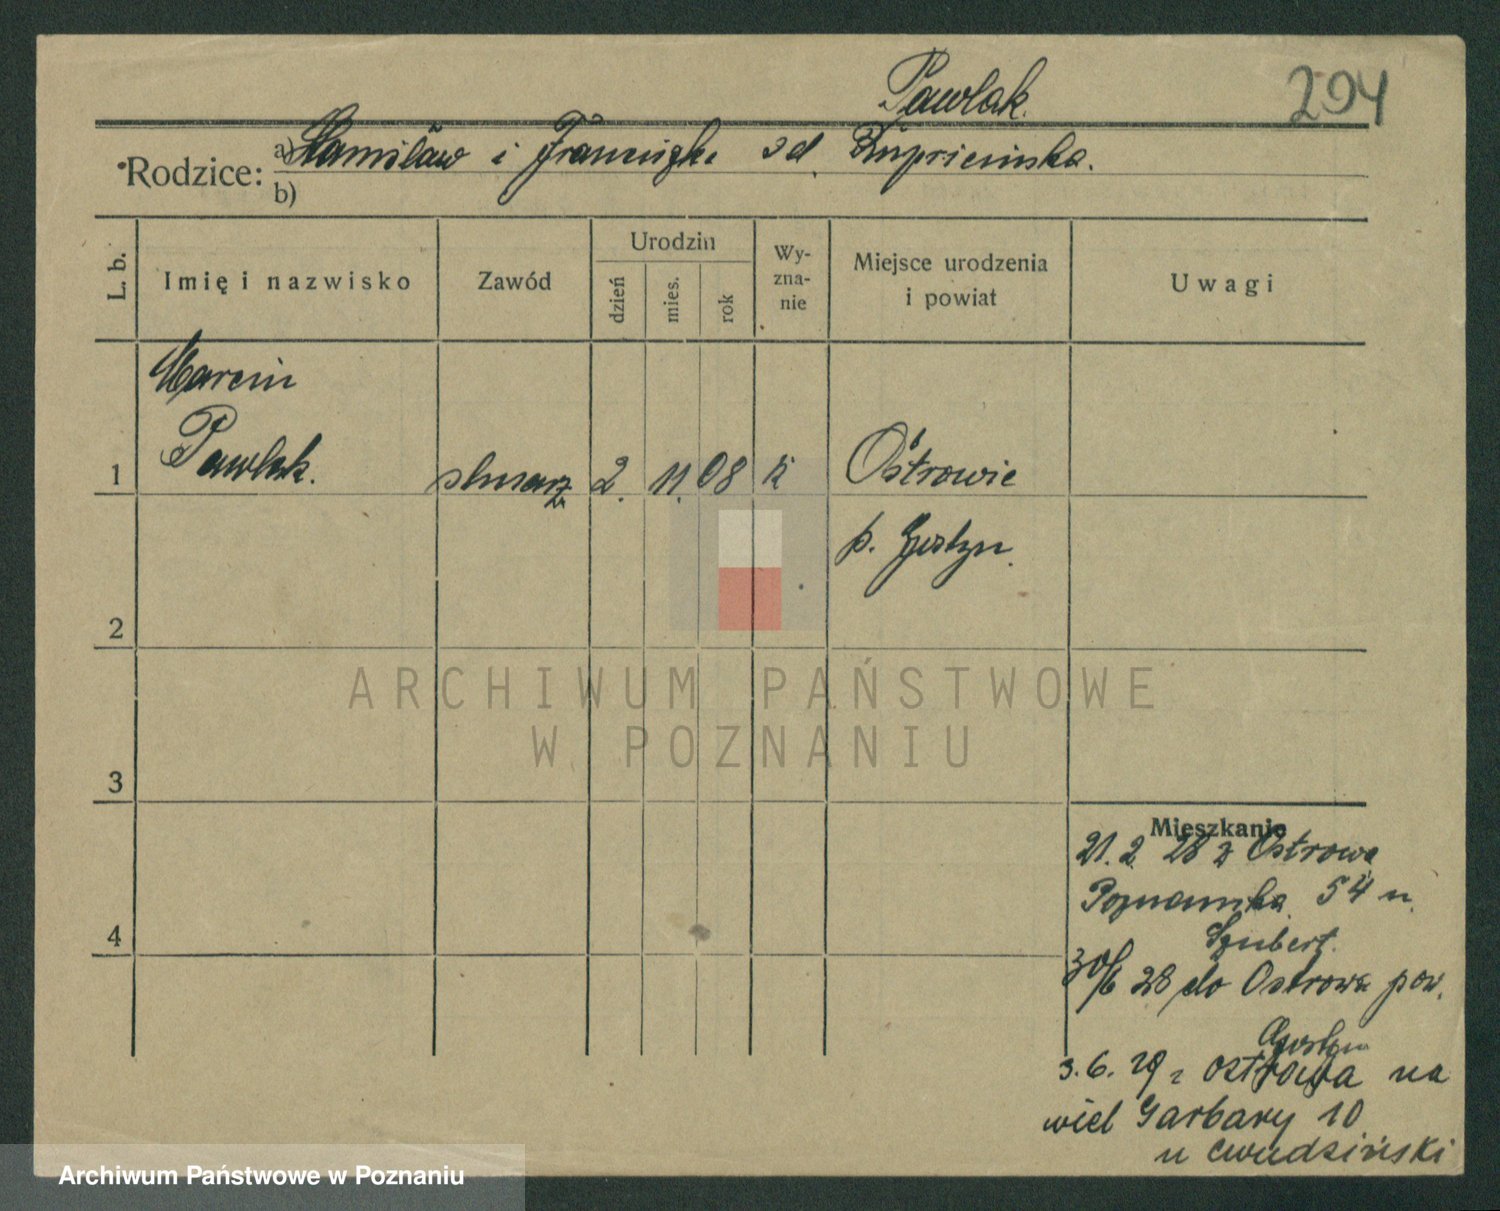 Pawlak.
294
Rodzice:
a) Stanisław i Franciszka zd.
b)
L. b.
Imię i nazwisko
Zawód
Urodzin
dzień
mies.
rok
Wy-
zna-
nie
Miejsce urodzenia
i powiat
Uwagi
Marcin
Pawlak.
1
ślusarz
2.
11.
08
k
Ostrowie
p. Gostyn.
2
ARCHIWUM PAŃSTWOWE
W POZNANIU
3
Mieszkanie
21. 2. 28 z Ostrowa
Poznańska 54 u.
Szubert.
4
30/6 28 do Ostrowa pow.
Gostyn
3. 6. 29 z Ostrowa na
wiel Garbary 10
u Cwudziński
Archiwum Państwowe w Poznaniu